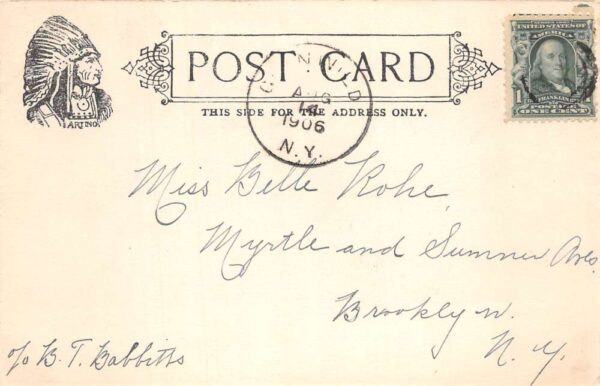 POST CARD
THIS SIDE FOR THE ADDRESS ONLY.
ARTINO
AUG
14
1906
N.Y.
UNITED STATES OF
AMERICA
1
FRANKLIN
POSTAGE
ONE CENT
Miss Belle Kohe,
Myrtle and Sumner Aves
Brooklyn.
N. Y.
c/o B. T. Babbitts